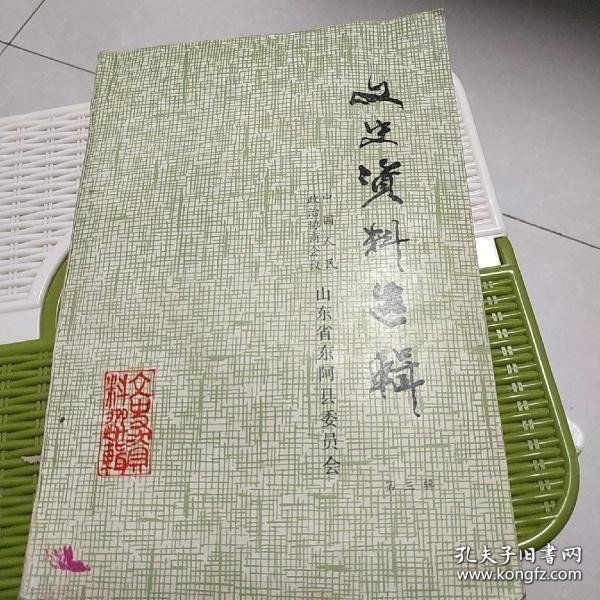 文史资料选辑
中国人民
政治协商会议
山东省东阿县委员会
第三辑
文史资料选辑
孔夫子旧书网
www.kongfz.com